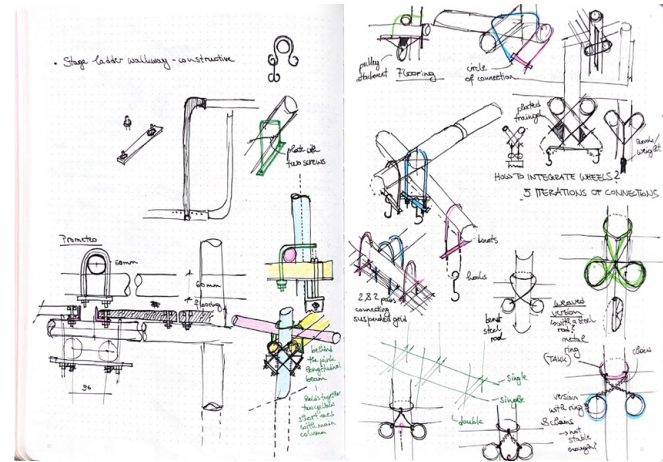 • Stage ladder walkway - constructive
plate with
two screws
Prometeo
60mm
60mm
flooring
96
behind
the pink
longitudinal
beam
holds together
two yellow
short axes
with main
column
pulley
attachment
Flooring
circle
of connection
plated
weight
HOW TO INTEGRATE WHEELS?
5 ITERATIONS OF CONNECTIONS
hooks
2 & 2 pairs
connecting
suspended grid
bent
steel
rod
weaved
version
with a steel
rod
metal
ring
(TALK)
single
single
double
version
with ring
& chains
→ not
stable
enough!